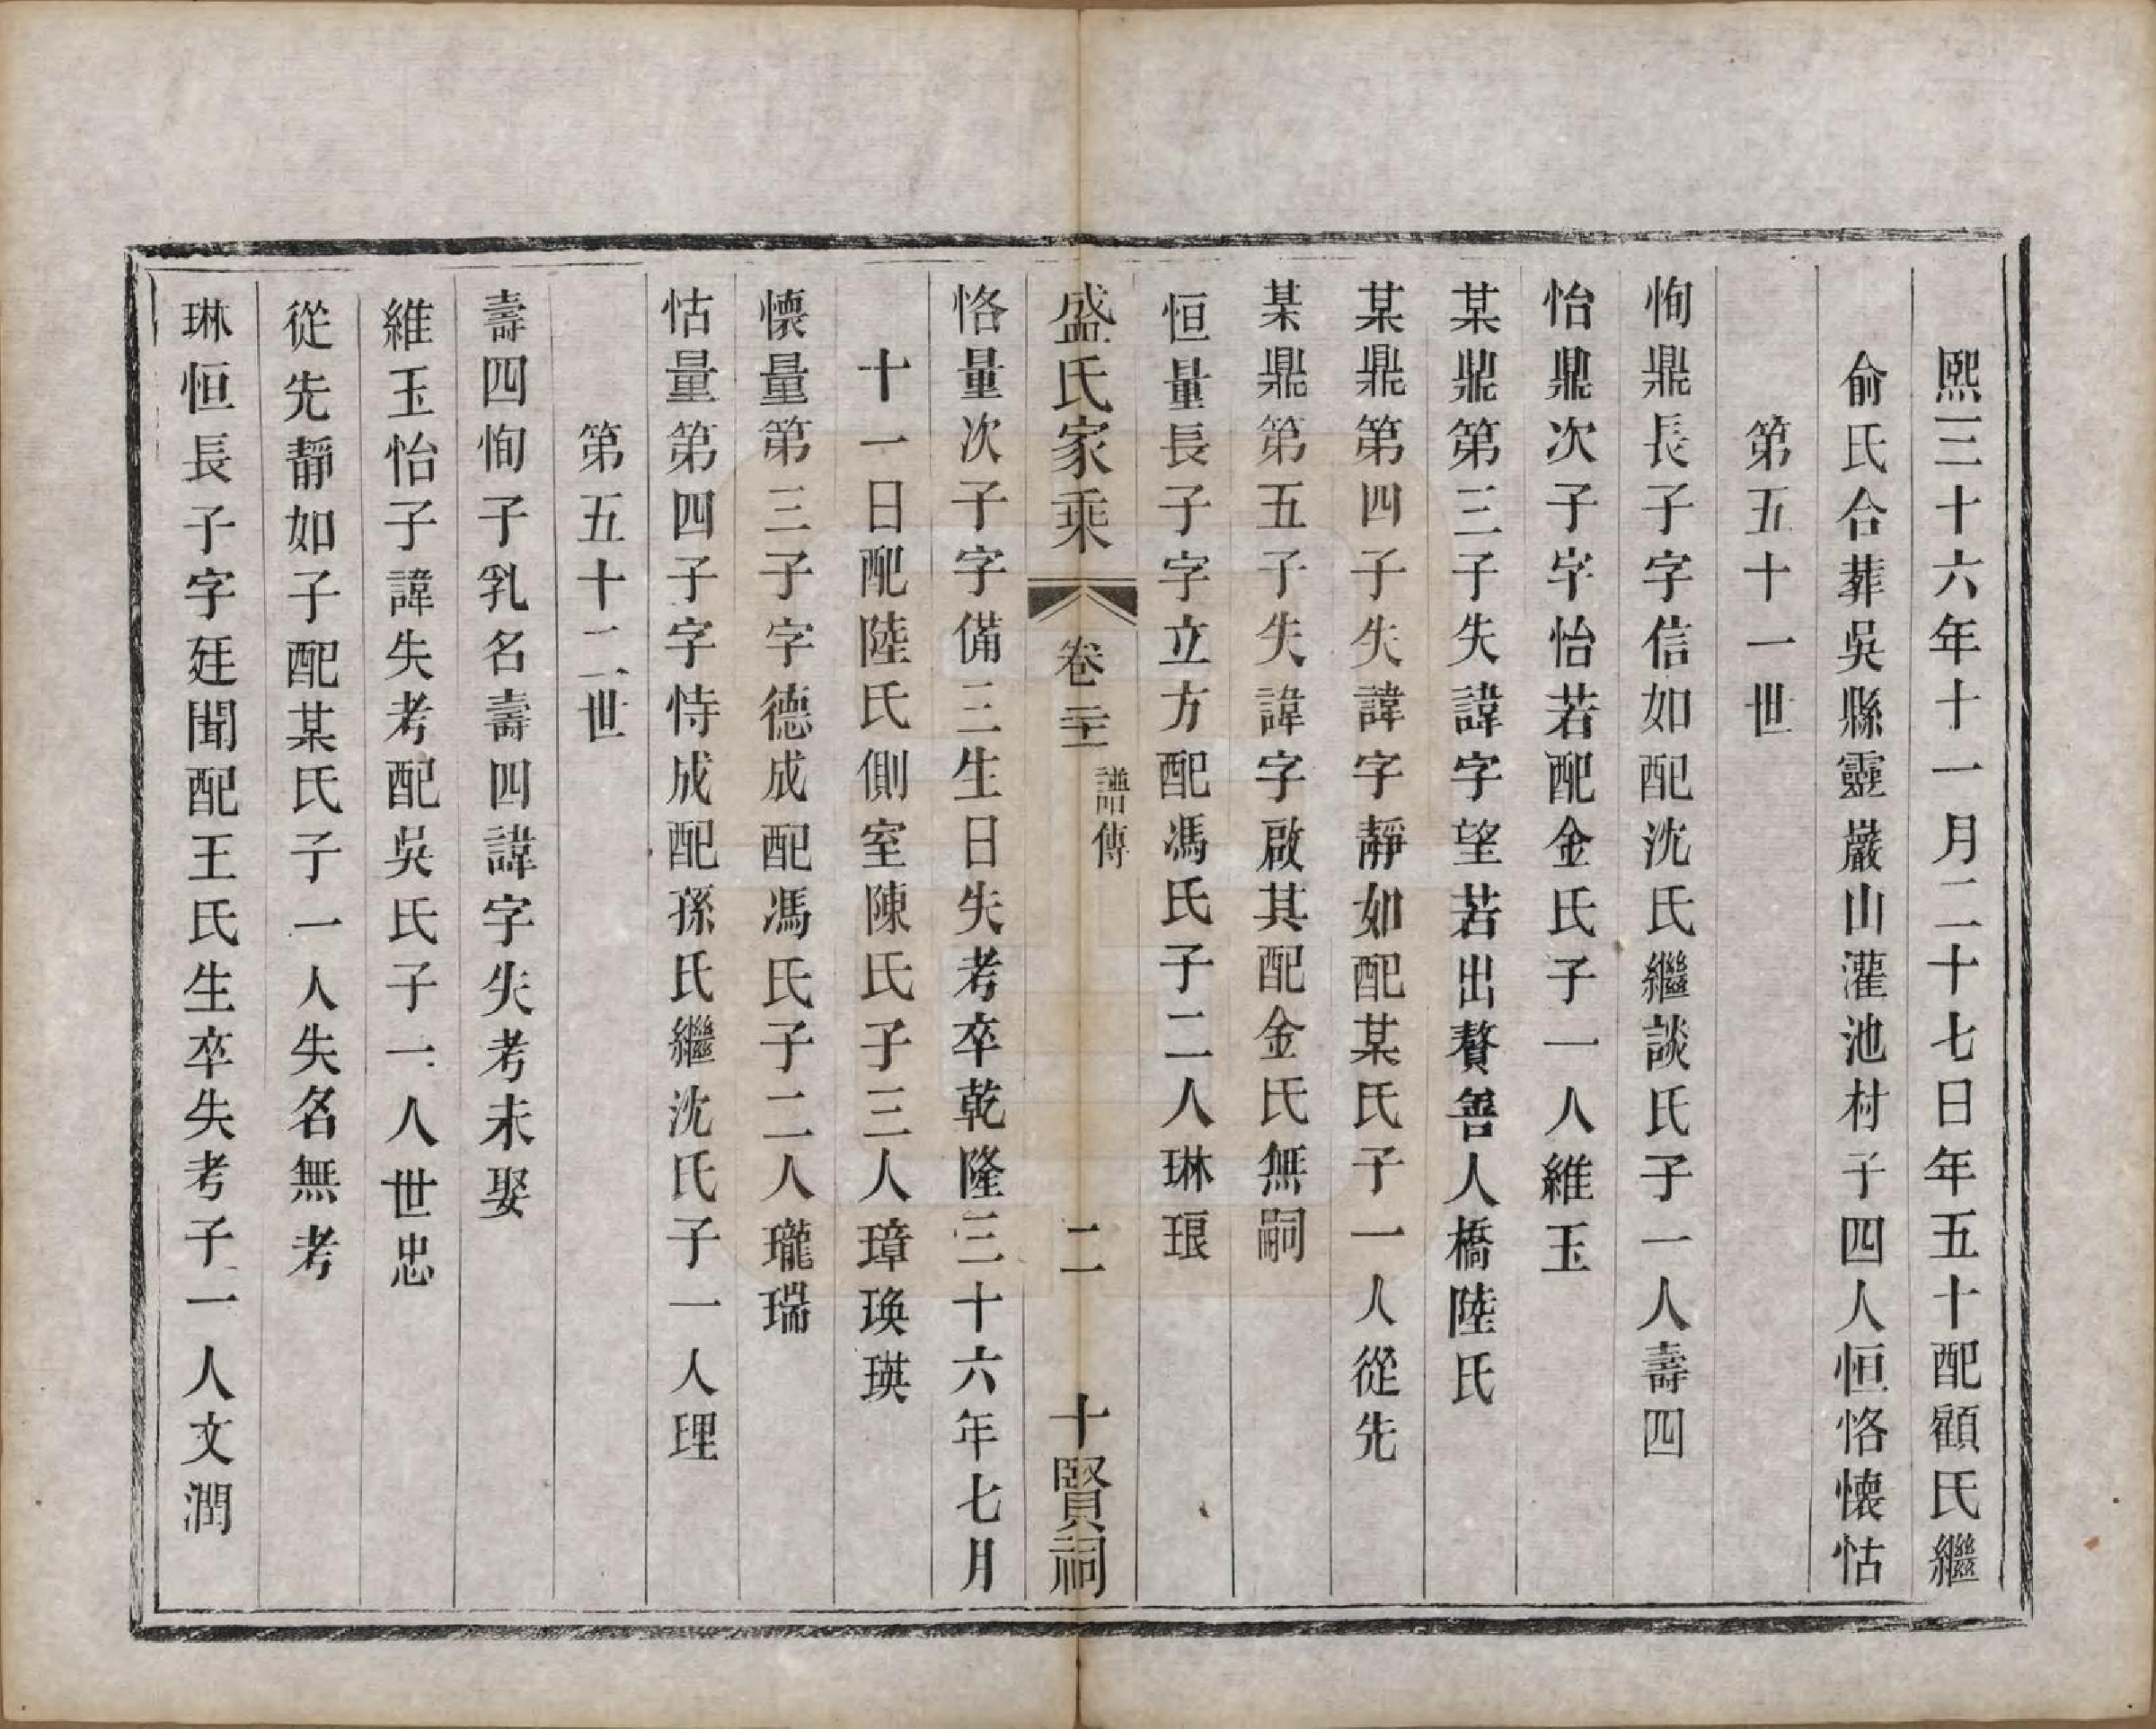 熙三十六年十一月二十七日年五十配顧氏繼
俞氏合葬吳縣靈巖山灌池村子四人恒恪懷怙
第五十一世
恂鼎長子字信如配沈氏繼談氏子一人壽四
怡鼎次子字怡若配金氏子一人維玉
某鼎第三子失諱字望若出贅善人橋陸氏
某鼎第四子失諱字靜如配某氏子一人從先
某鼎第五子失諱字啟其配金氏無嗣
恒量長子字立方配馮氏子二人琳琅
盛氏家乘 卷二十二 譜傳 二 十賢祠
恪量次子字備三生日失考卒乾隆三十六年七月
十一日配陸氏側室陳氏子三人璋瑍瑛
懷量第三子字德成配馮氏子二人瓏瑞
怙量第四子字恃成配孫氏繼沈氏子一人理
第五十二世
壽四恂子乳名壽四諱字失考未娶
維玉怡子諱失考配吳氏子一人世忠
從先靜如子配某氏子一人失名無考
琳恒長子字廷聞配王氏生卒失考子一人文潤